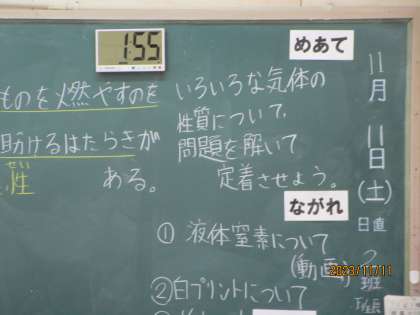 11月11日(土)
日直
2班
班長
めあて
いろいろな気体の
性質について、
問題を解いて
定着させよう。
ながれ
① 液体窒素について
(動画)
②白プリントについて
1:55
ものを燃やすのを
助けるはたらきが
ある。
せい
性
2023/11/11